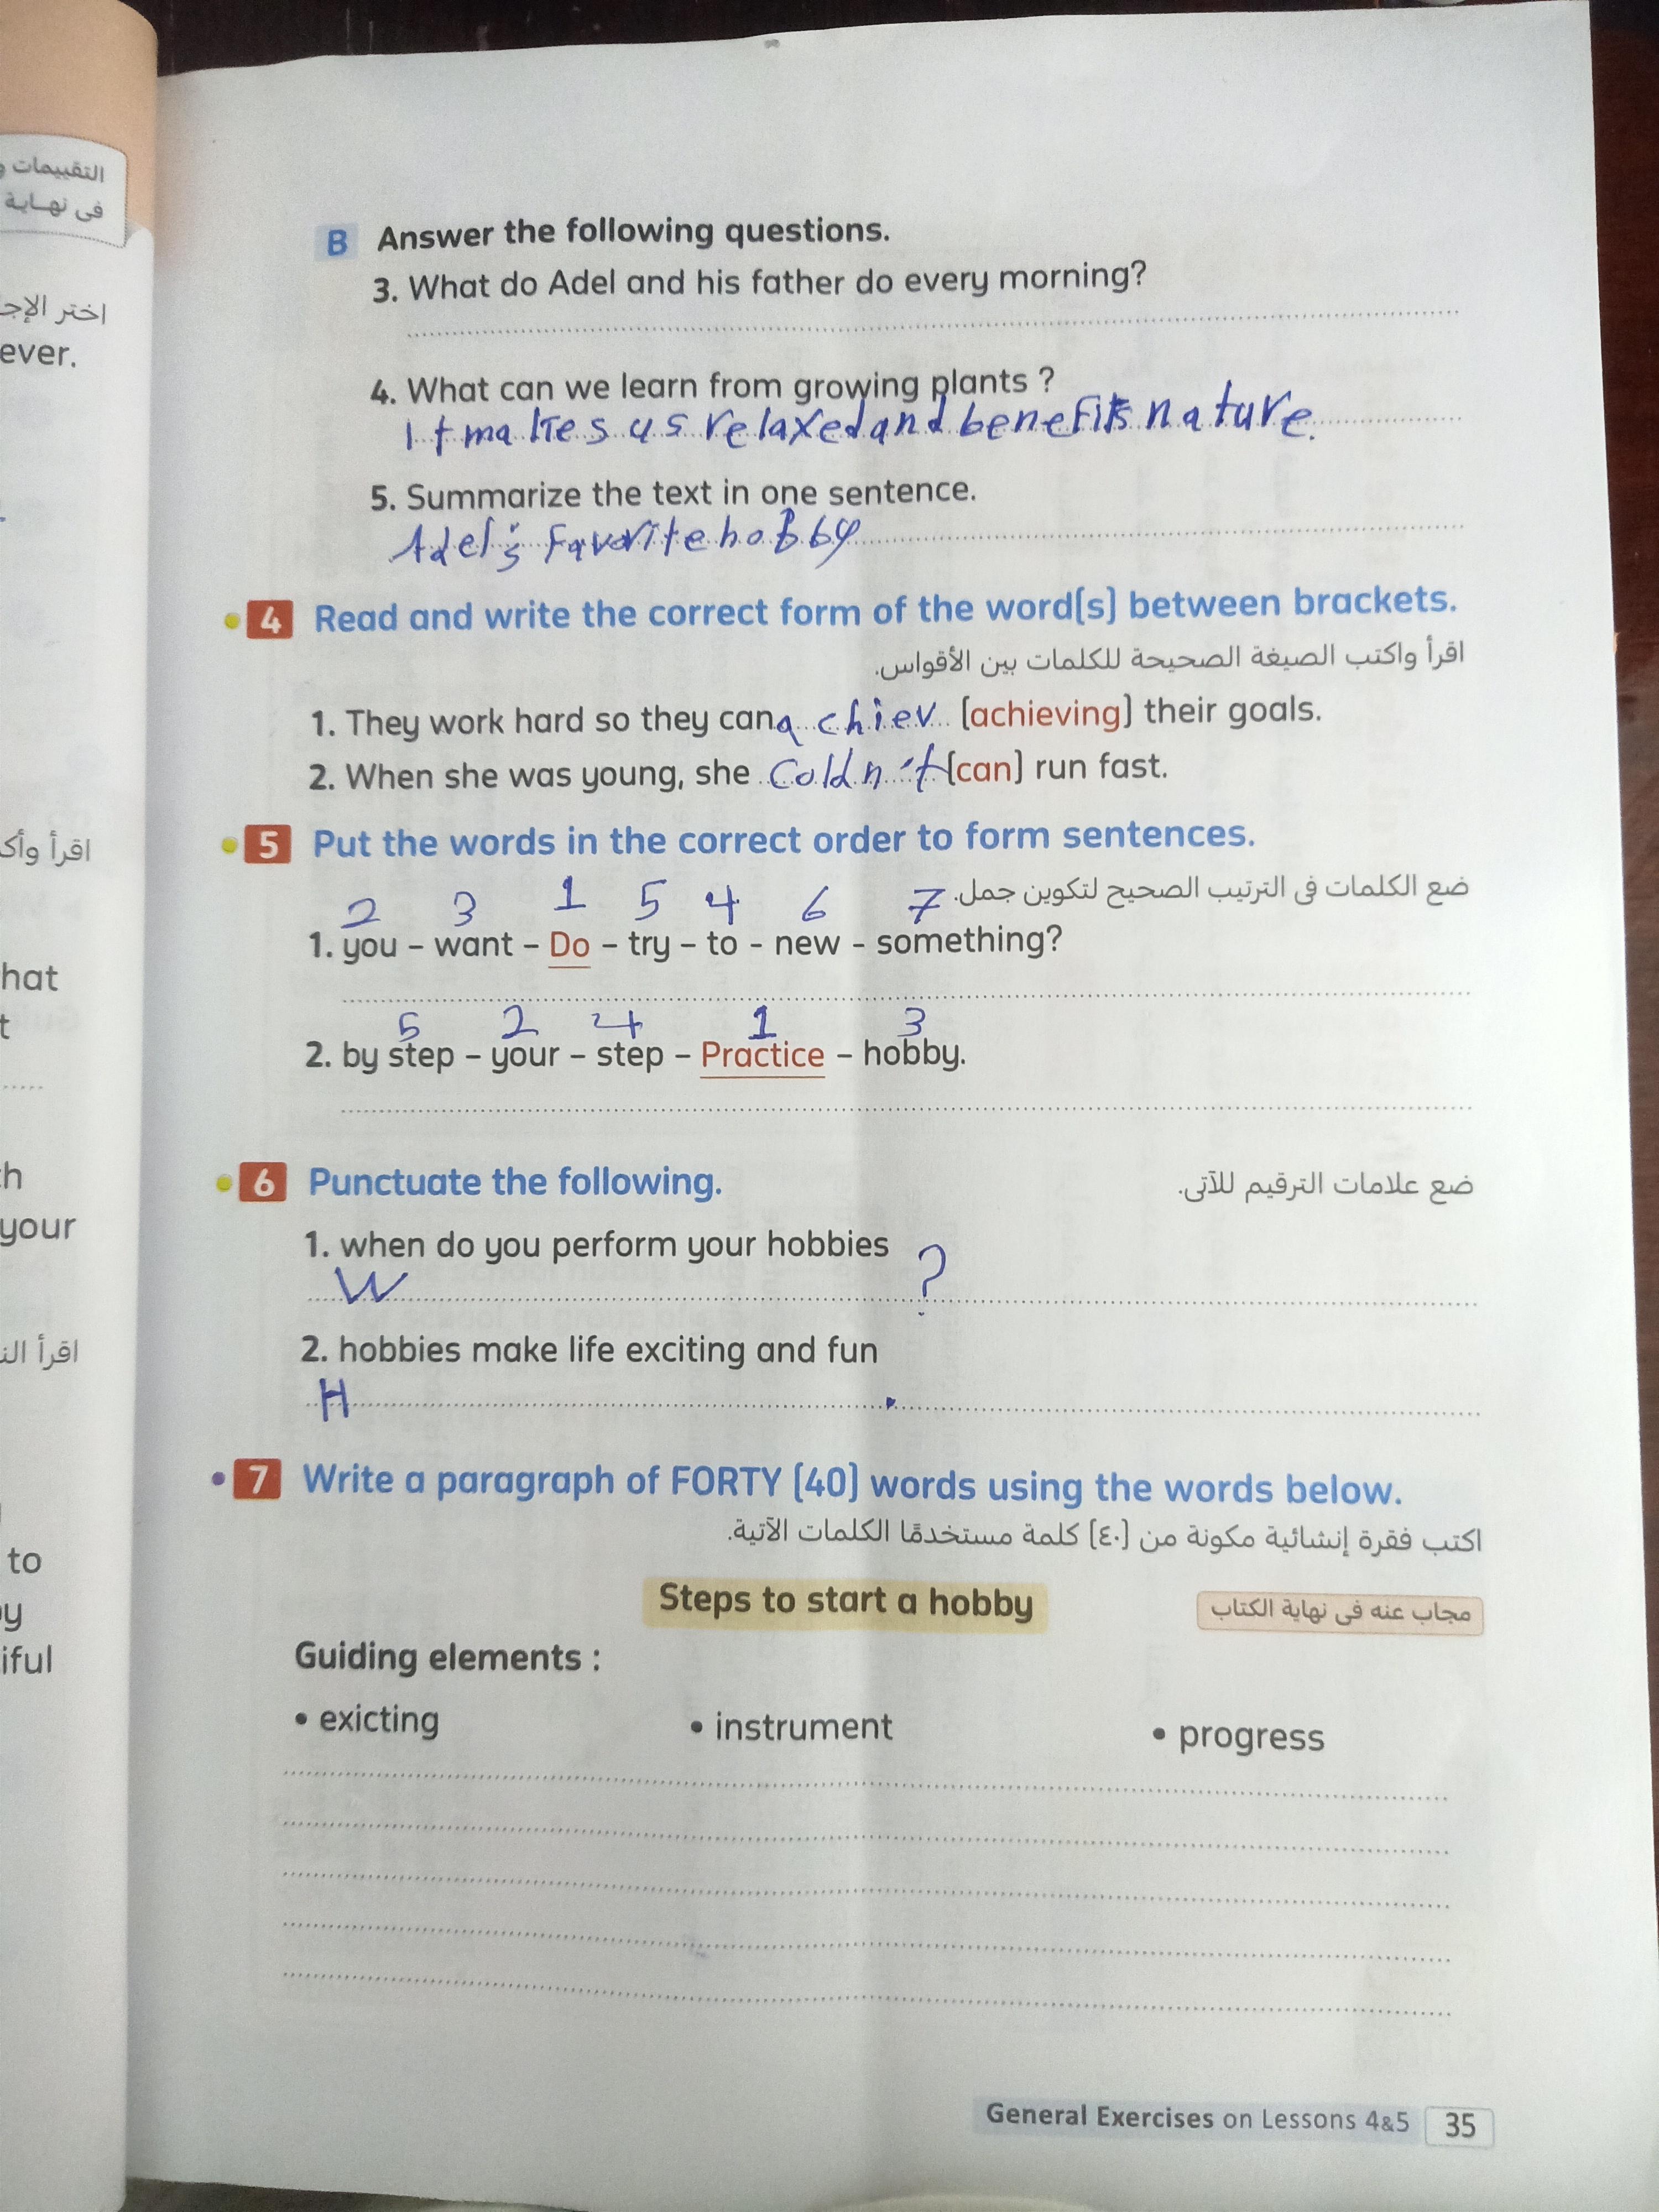 التقييمات و
فى نهـايـة
اختر الإجـ
ever.
اقرأ وأكـ
hat
t
h
your
اقرأ النـ
to
y
iful
B Answer the following questions.
3. What do Adel and his father do every morning?
4. What can we learn from growing plants ?
It makes us relaxed and benefits nature.
5. Summarize the text in one sentence.
Adel's Favorite hobby
4 Read and write the correct form of the word(s) between brackets.
اقرأ واكتب الصيغة الصحيحة للكلمات بين الأقواس.
1. They work hard so they can achiev (achieving) their goals.
2. When she was young, she Coldn't (can) run fast.
5 Put the words in the correct order to form sentences.
ضع الكلمات فى الترتيب الصحيح لتكوين جمل.
2 3 1 5 4 6 7
1. you – want – Do – try – to - new - something?
5 2 4 1 3
2. by step – your – step – Practice – hobby.
6 Punctuate the following.
ضع علامات الترقيم للآتى.
1. when do you perform your hobbies
W ?
2. hobbies make life exciting and fun
H .
7 Write a paragraph of FORTY (40) words using the words below.
اكتب فقرة إنشائية مكونة من (٤٠) كلمة مستخدمًا الكلمات الآتية.
Steps to start a hobby
مجاب عنه فى نهاية الكتاب
Guiding elements :
• exicting • instrument • progress
General Exercises on Lessons 4&5 35